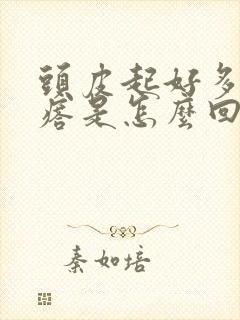 頭皮起好多
痞是怎麼回
秦如培